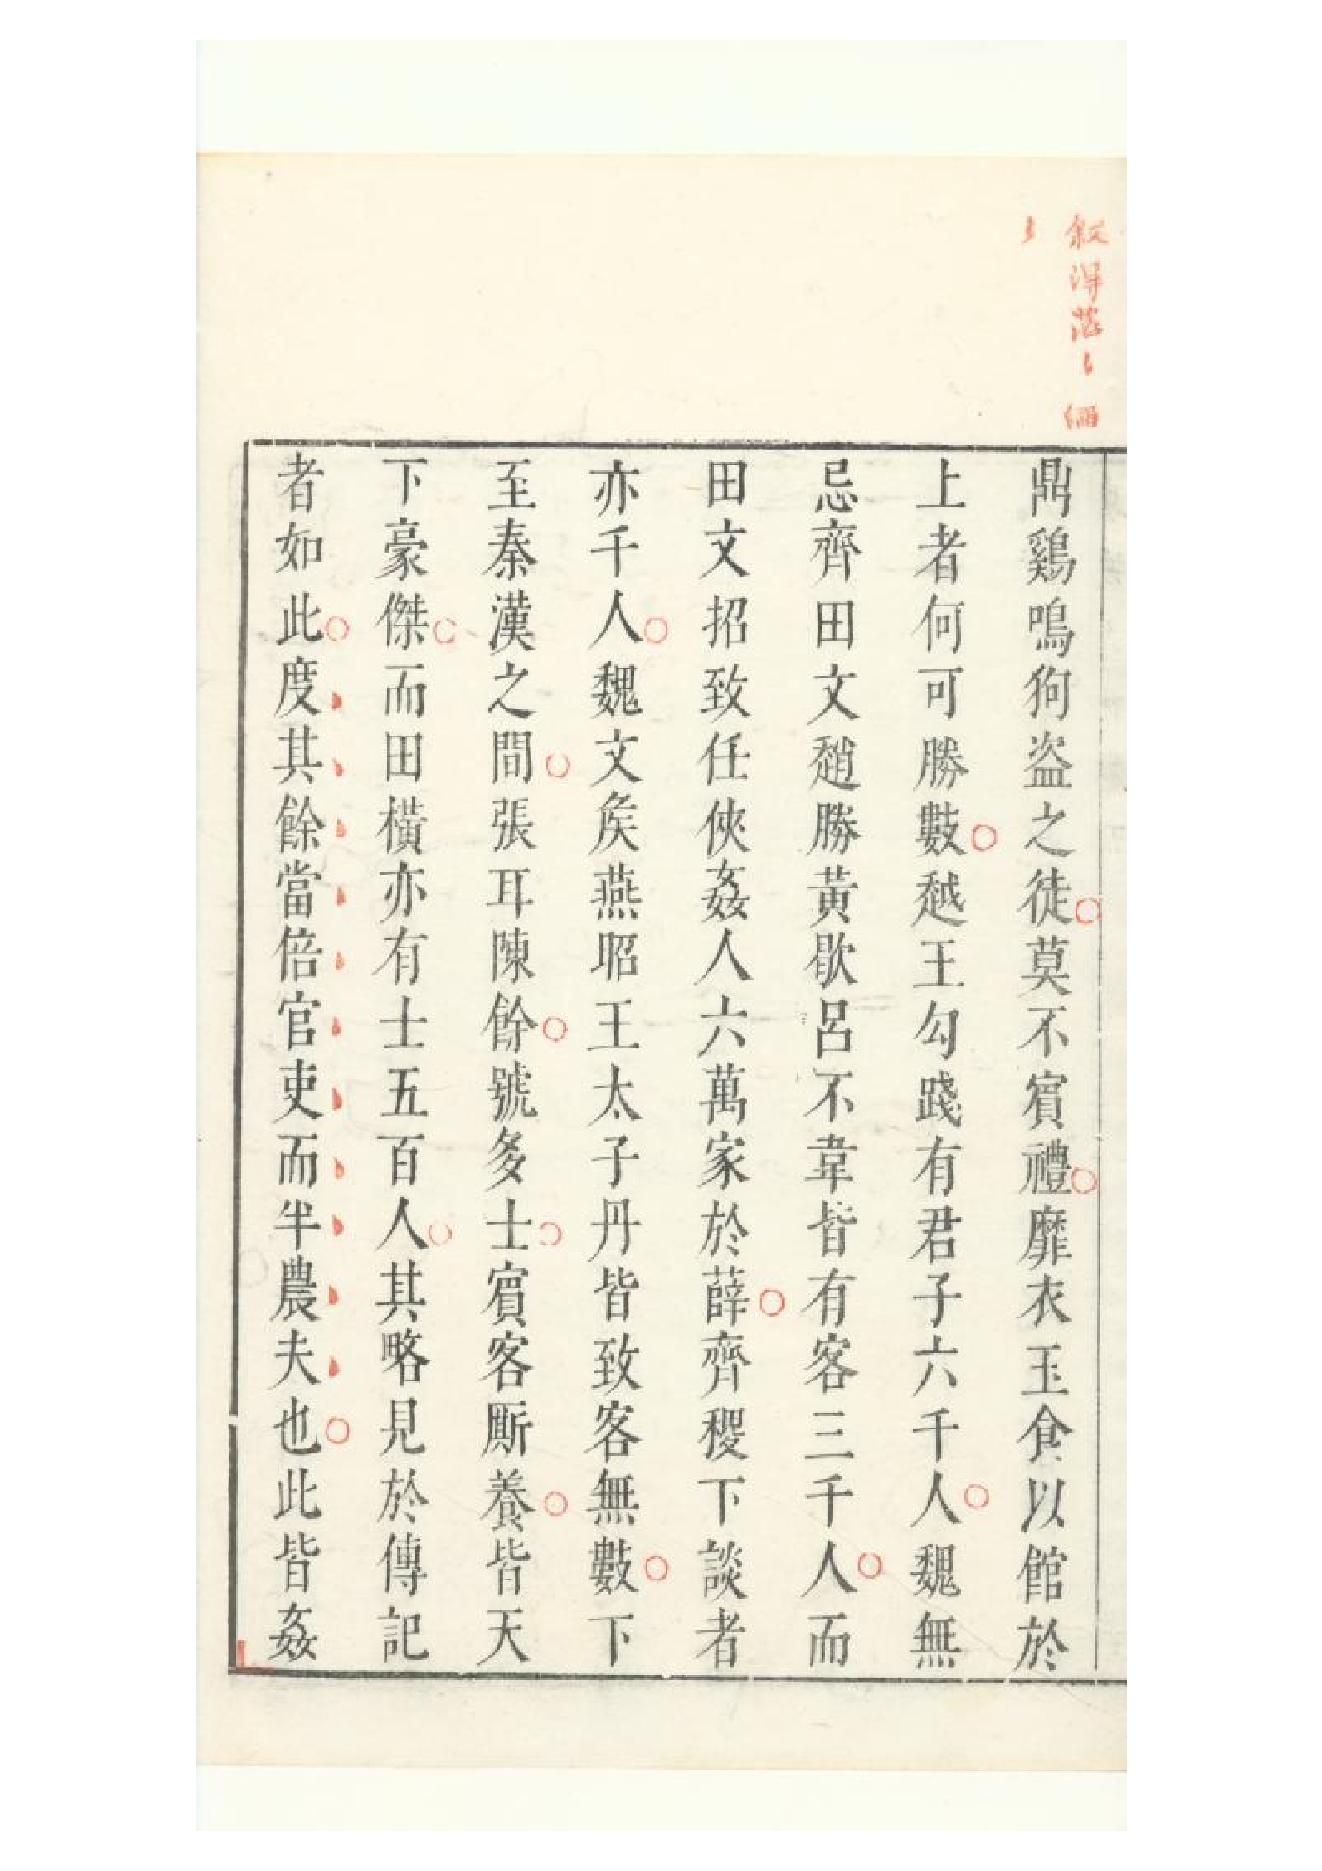 叙得落〻
鼎鷄鳴狗盗之徒莫不賔禮靡衣玉食以館於
上者何可勝數越王勾踐有君子六千人魏無
忌齊田文趙勝黃歇呂不韋皆有客三千人而
田文招致任俠姦人六萬家於薛齊稷下談者
亦千人魏文侯燕昭王太子丹皆致客無數下
至秦漢之間張耳陳餘號多士賔客厮養皆天
下豪傑而田橫亦有士五百人其略見於傳記
者如此度其餘當倍官吏而半農夫也此皆姦